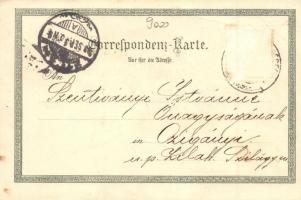 9020
Correspondenz-Karte.
Nur für die Adresse.
Szentiványi Istvánné
Őnagyságának
in Czigányi
u. p. Zilah Szilágy m